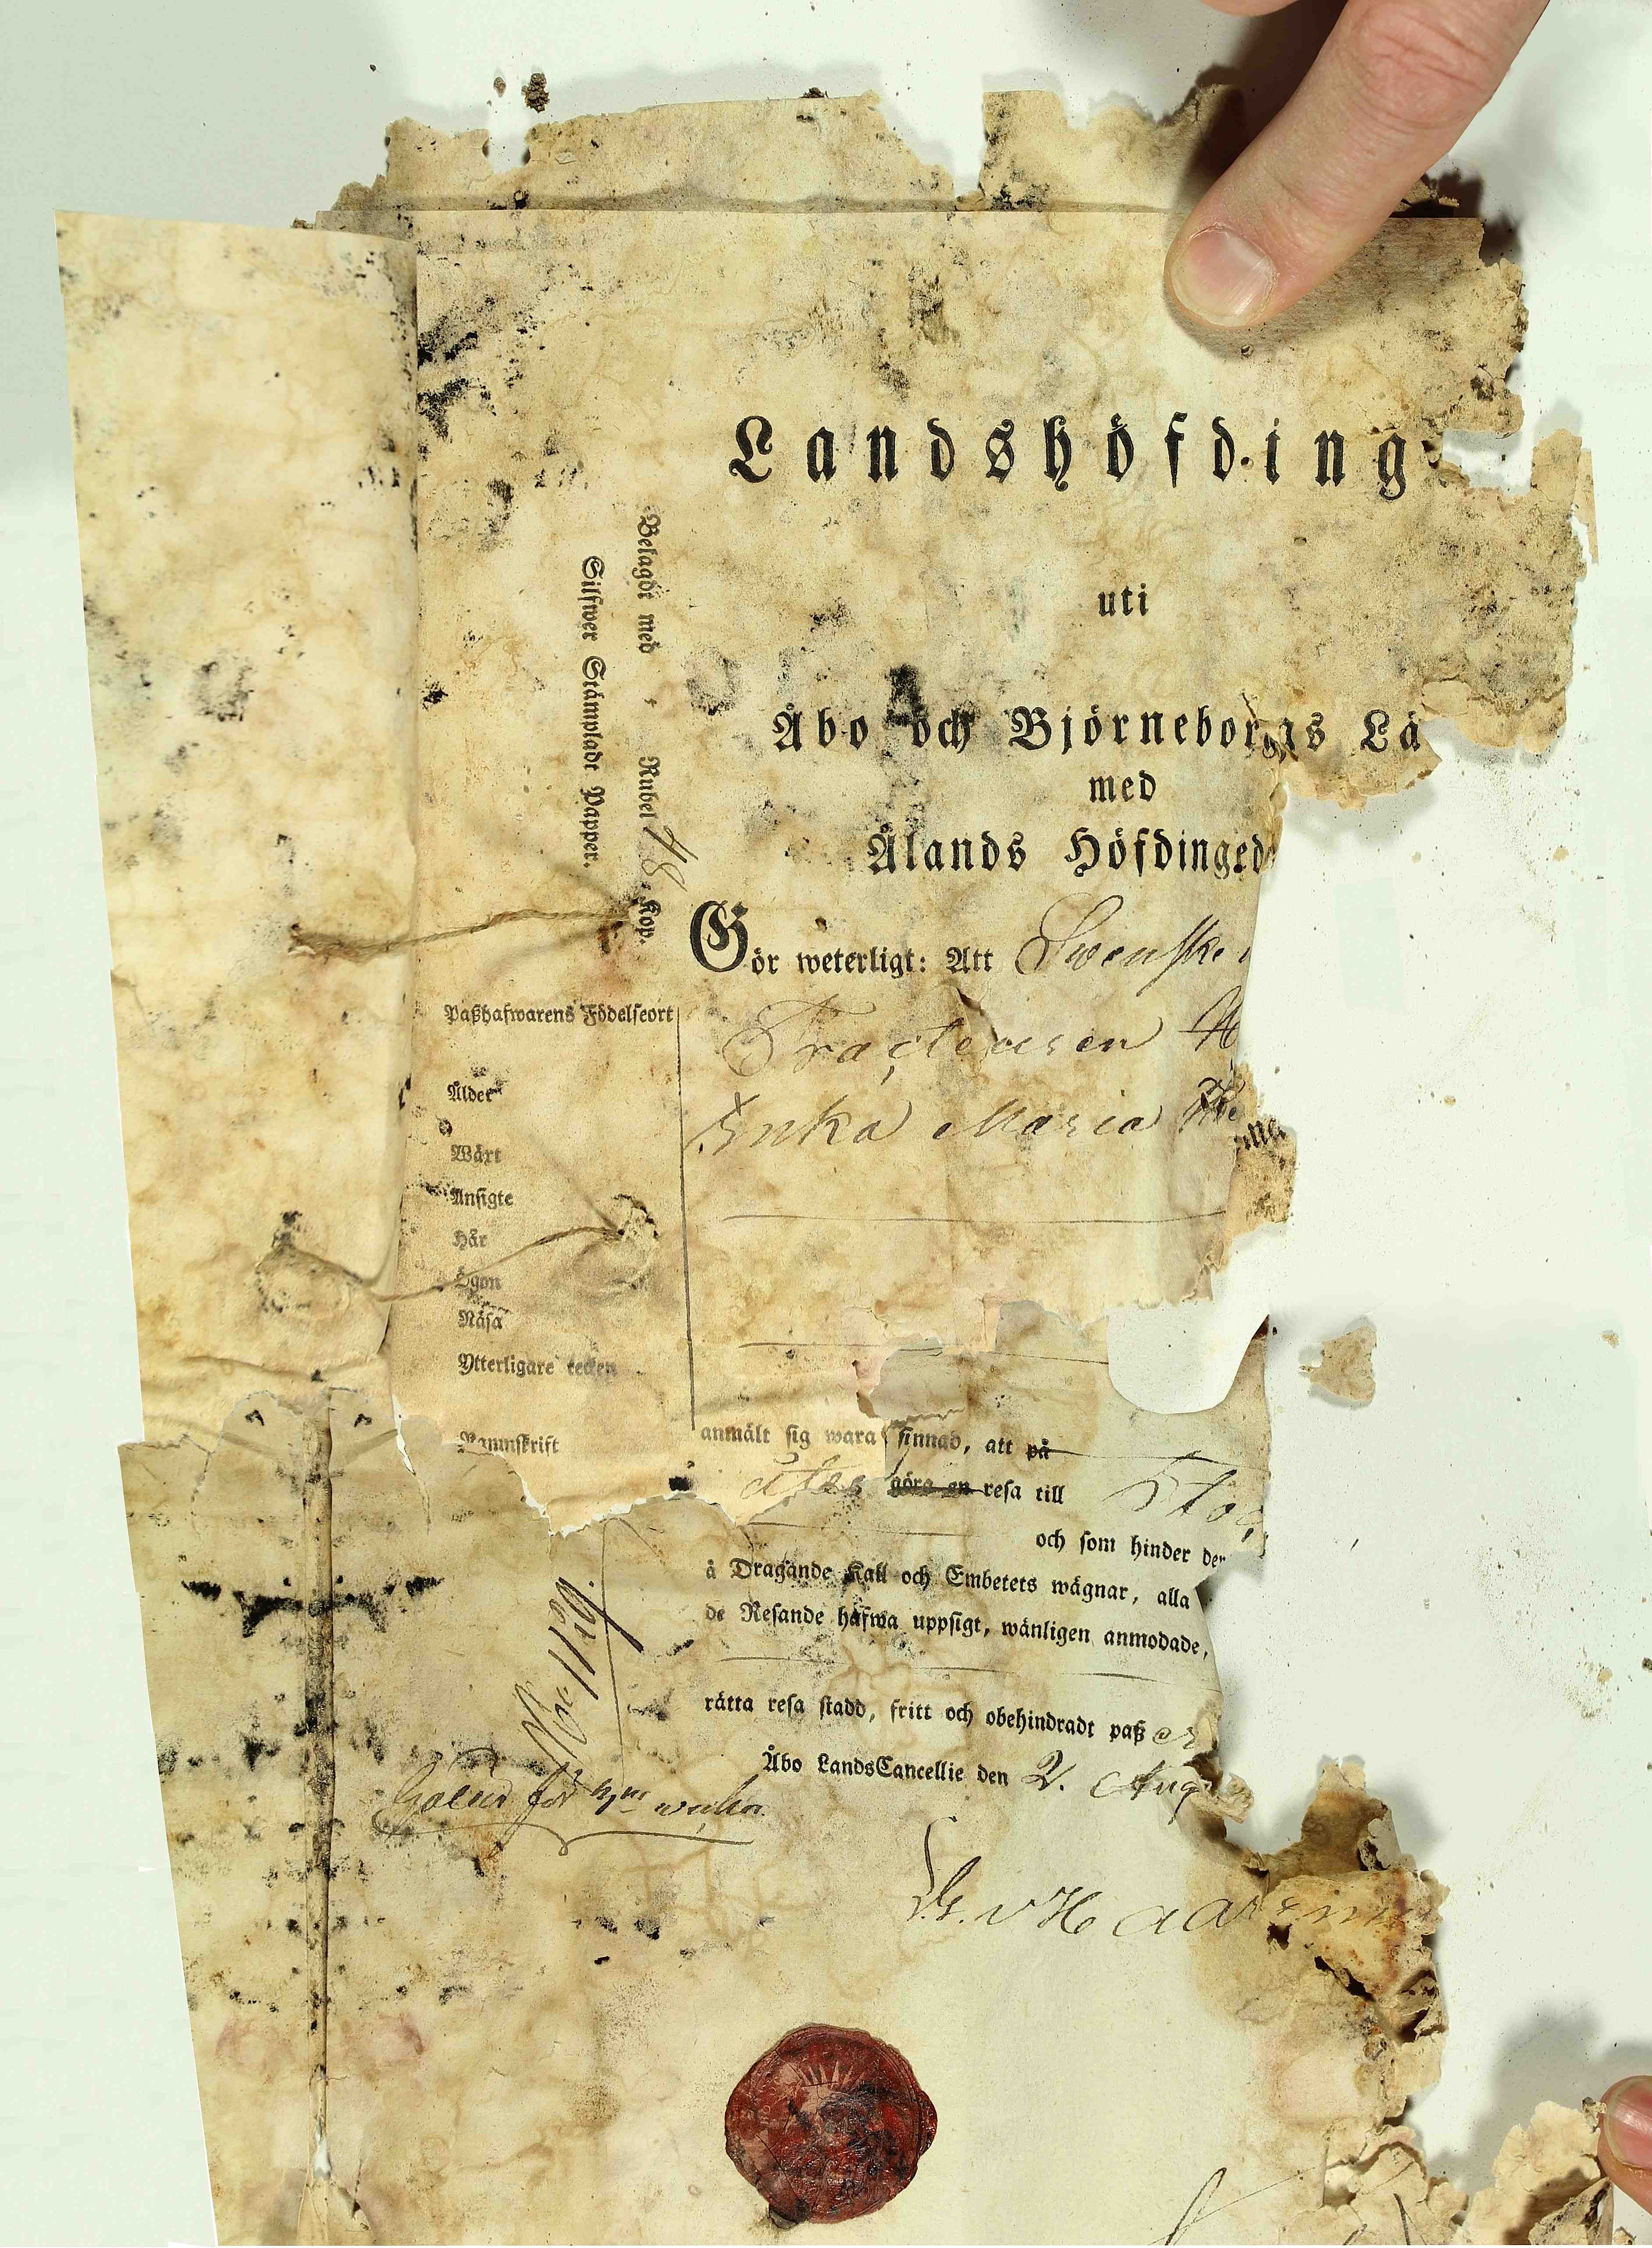 Landshöfding
uti
Åbo och Björneborgs Lä
med
Ålands Höfdinged
Belagdt med , Rubel 48 Kop.
Silfwer Stämpladt Papper.
Gör weterligt: Att Swenske
Enka Maria
Paßhafwarens Födelseort
Ålder
Wäxt
Ansigte
Hår
Ögon
Näsa
Ytterligare tecken
Namnskrift
anmält sig wara sinnad, att på
åter göra en resa till Stoc
och som hinder der
å Dragande Kall och Embetets wägnar, alla
de Resande hafwa uppsigt, wänligen anmodade,
rätta resa stadd, fritt och obehindradt paß
Åbo LandsCancellie den 2. Aug
No 1169.
för